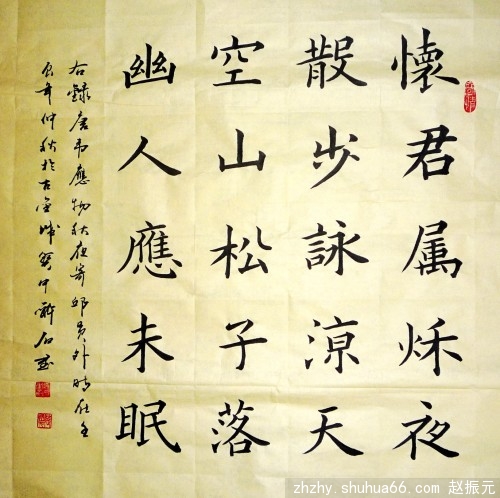 懷君属秌夜
散步詠涼天
空山松子落
幽人應未眠
右錄唐韦應物秋夜寄邱員外時在壬
辰年仲秋於古金城
zhzhy.shuhua66.com 赵振元